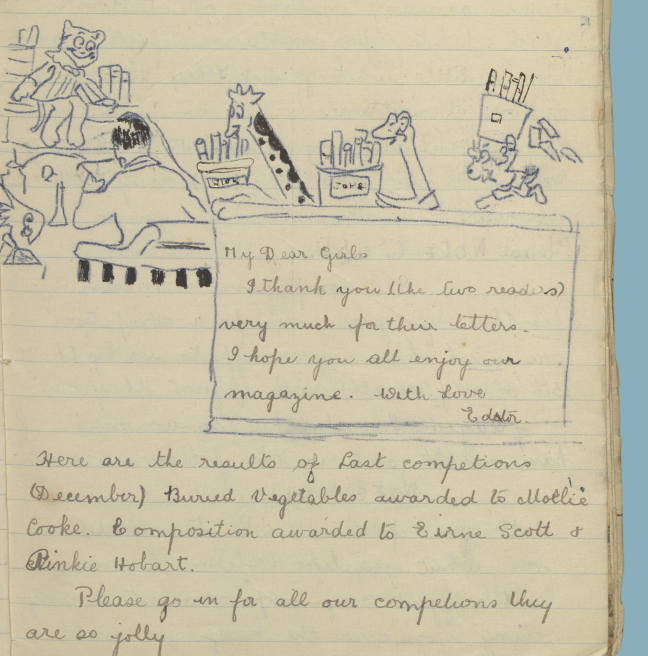 JOKE
My Dear Girls
I thank you (the two readers)
very much for their letters.
I hope you all enjoy our
magazine. With Love
Editor.
Here are the results of Last competions
(December) Buried Vegetables awarded to Mollie
Cooke. Composition awarded to Eirne Scott &
Pinkie Hobart.
Please go in for all our competions they
are so jolly